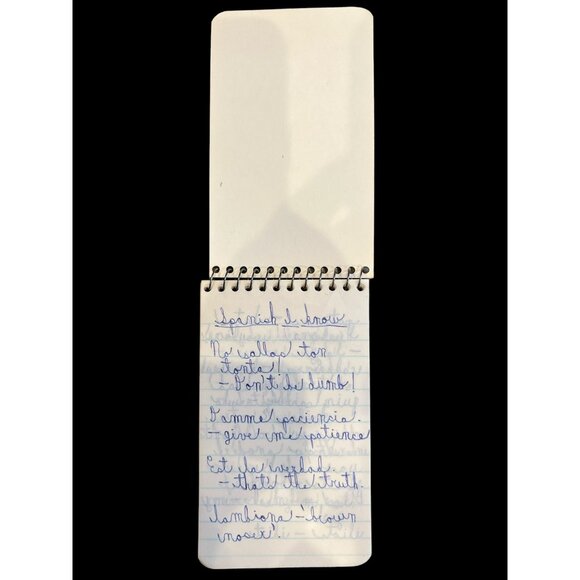 Spanish I know
No vallas tan
tonta!
- Don't be dumb!
Damme paciencia.
- give me patience
Est la verdad.
- that's the truth.
lambiona - 'brown
noser'.